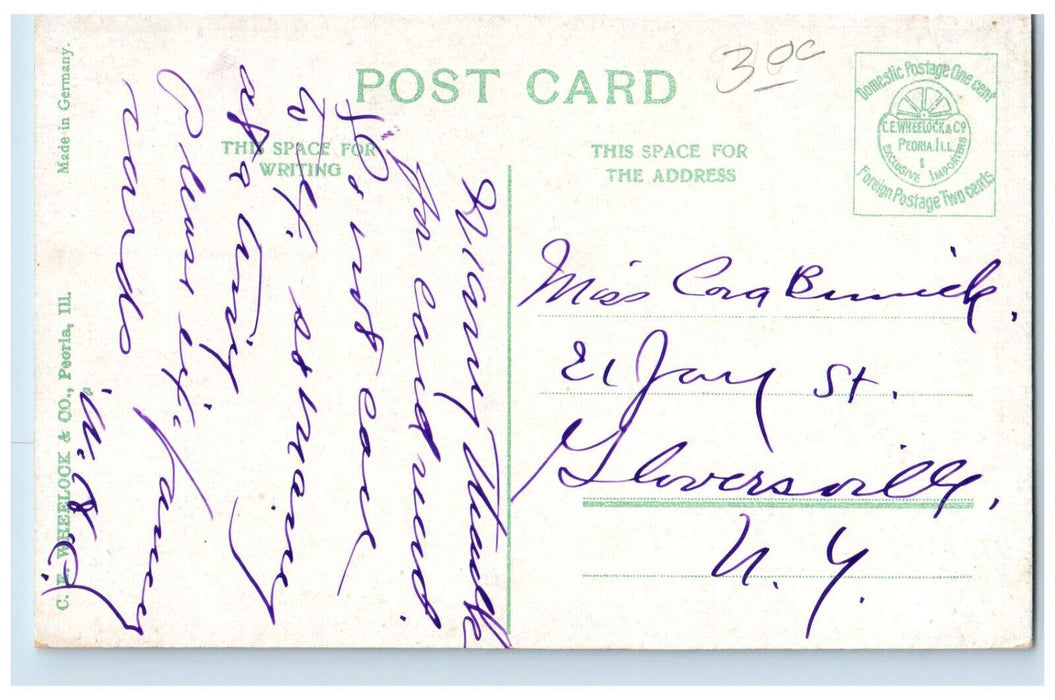 POST CARD
3 00
Domestic Postage One cent
C.E. WHEELOCK & CO
PEORIA, ILL
EXCLUSIVE IMPORTERS
Foreign Postage Two cents
THIS SPACE FOR
WRITING
THIS SPACE FOR
THE ADDRESS
Made in Germany.
C. E. WHEELOCK & CO., Peoria, Ill.
Many thanks
for card
Do not care
to ex. so many
of a
Please ex.
cards
Miss Cora
21 Jay St.
Gloversville,
N. Y.